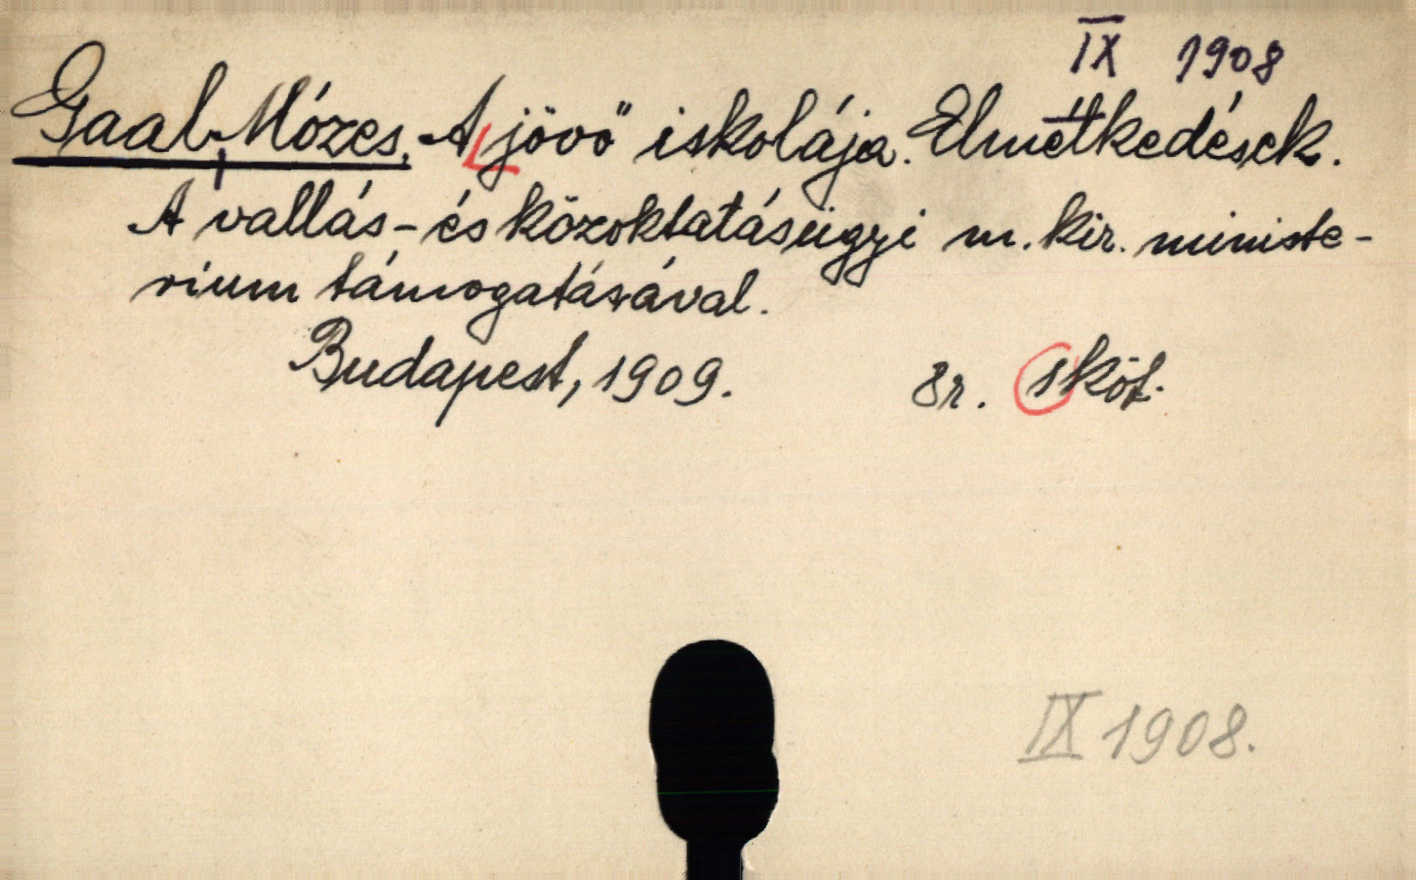 IX 1908
Gaal, Mózes, A jövő iskolája. Elmélkedések.
A vallás- és közoktatásügyi m. kir. ministe-
rium támogatásával.
Budapest, 1909. 8r. 1 köt.
IX 1908.